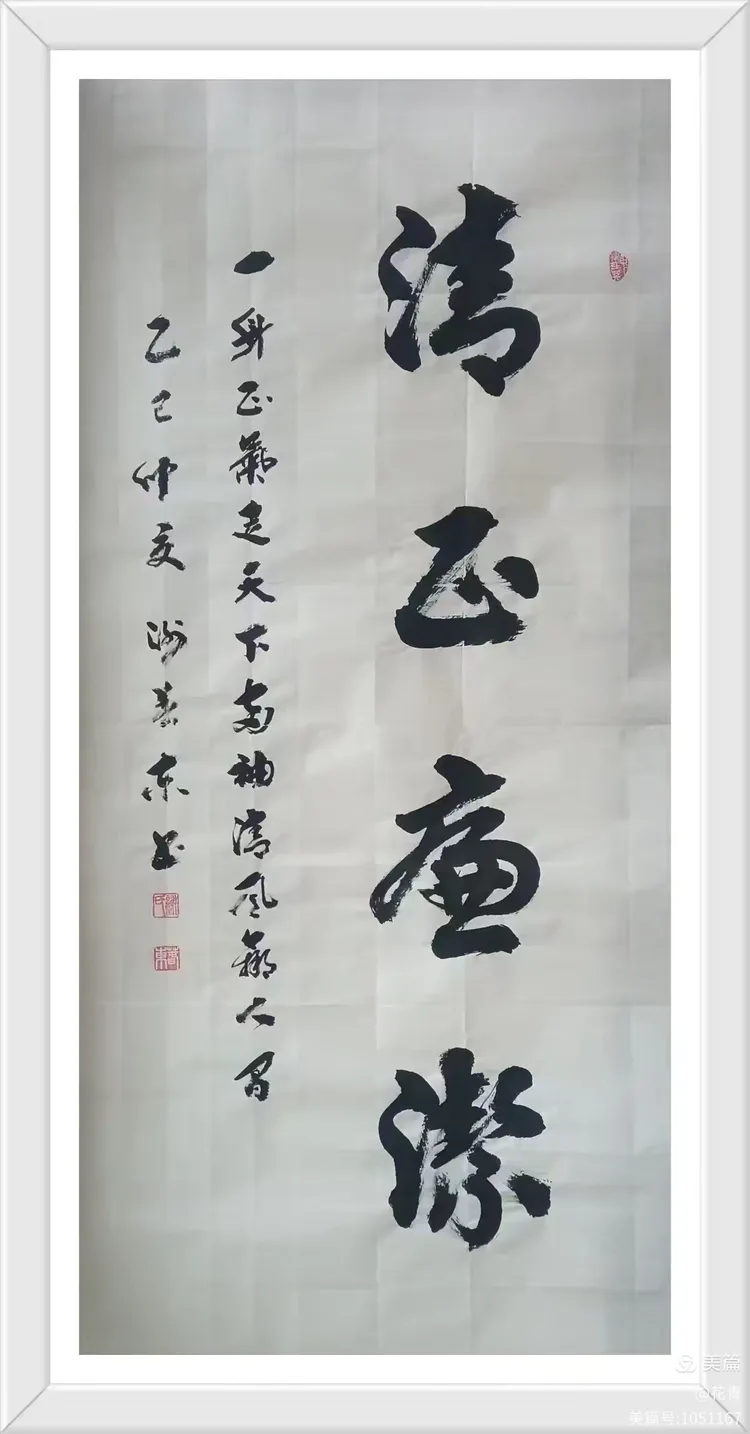 清正廉潔
一身正氣走天下两袖清風鄉人留
乙巳仲夏 春东书
美篇
@花青
美篇号:1051167